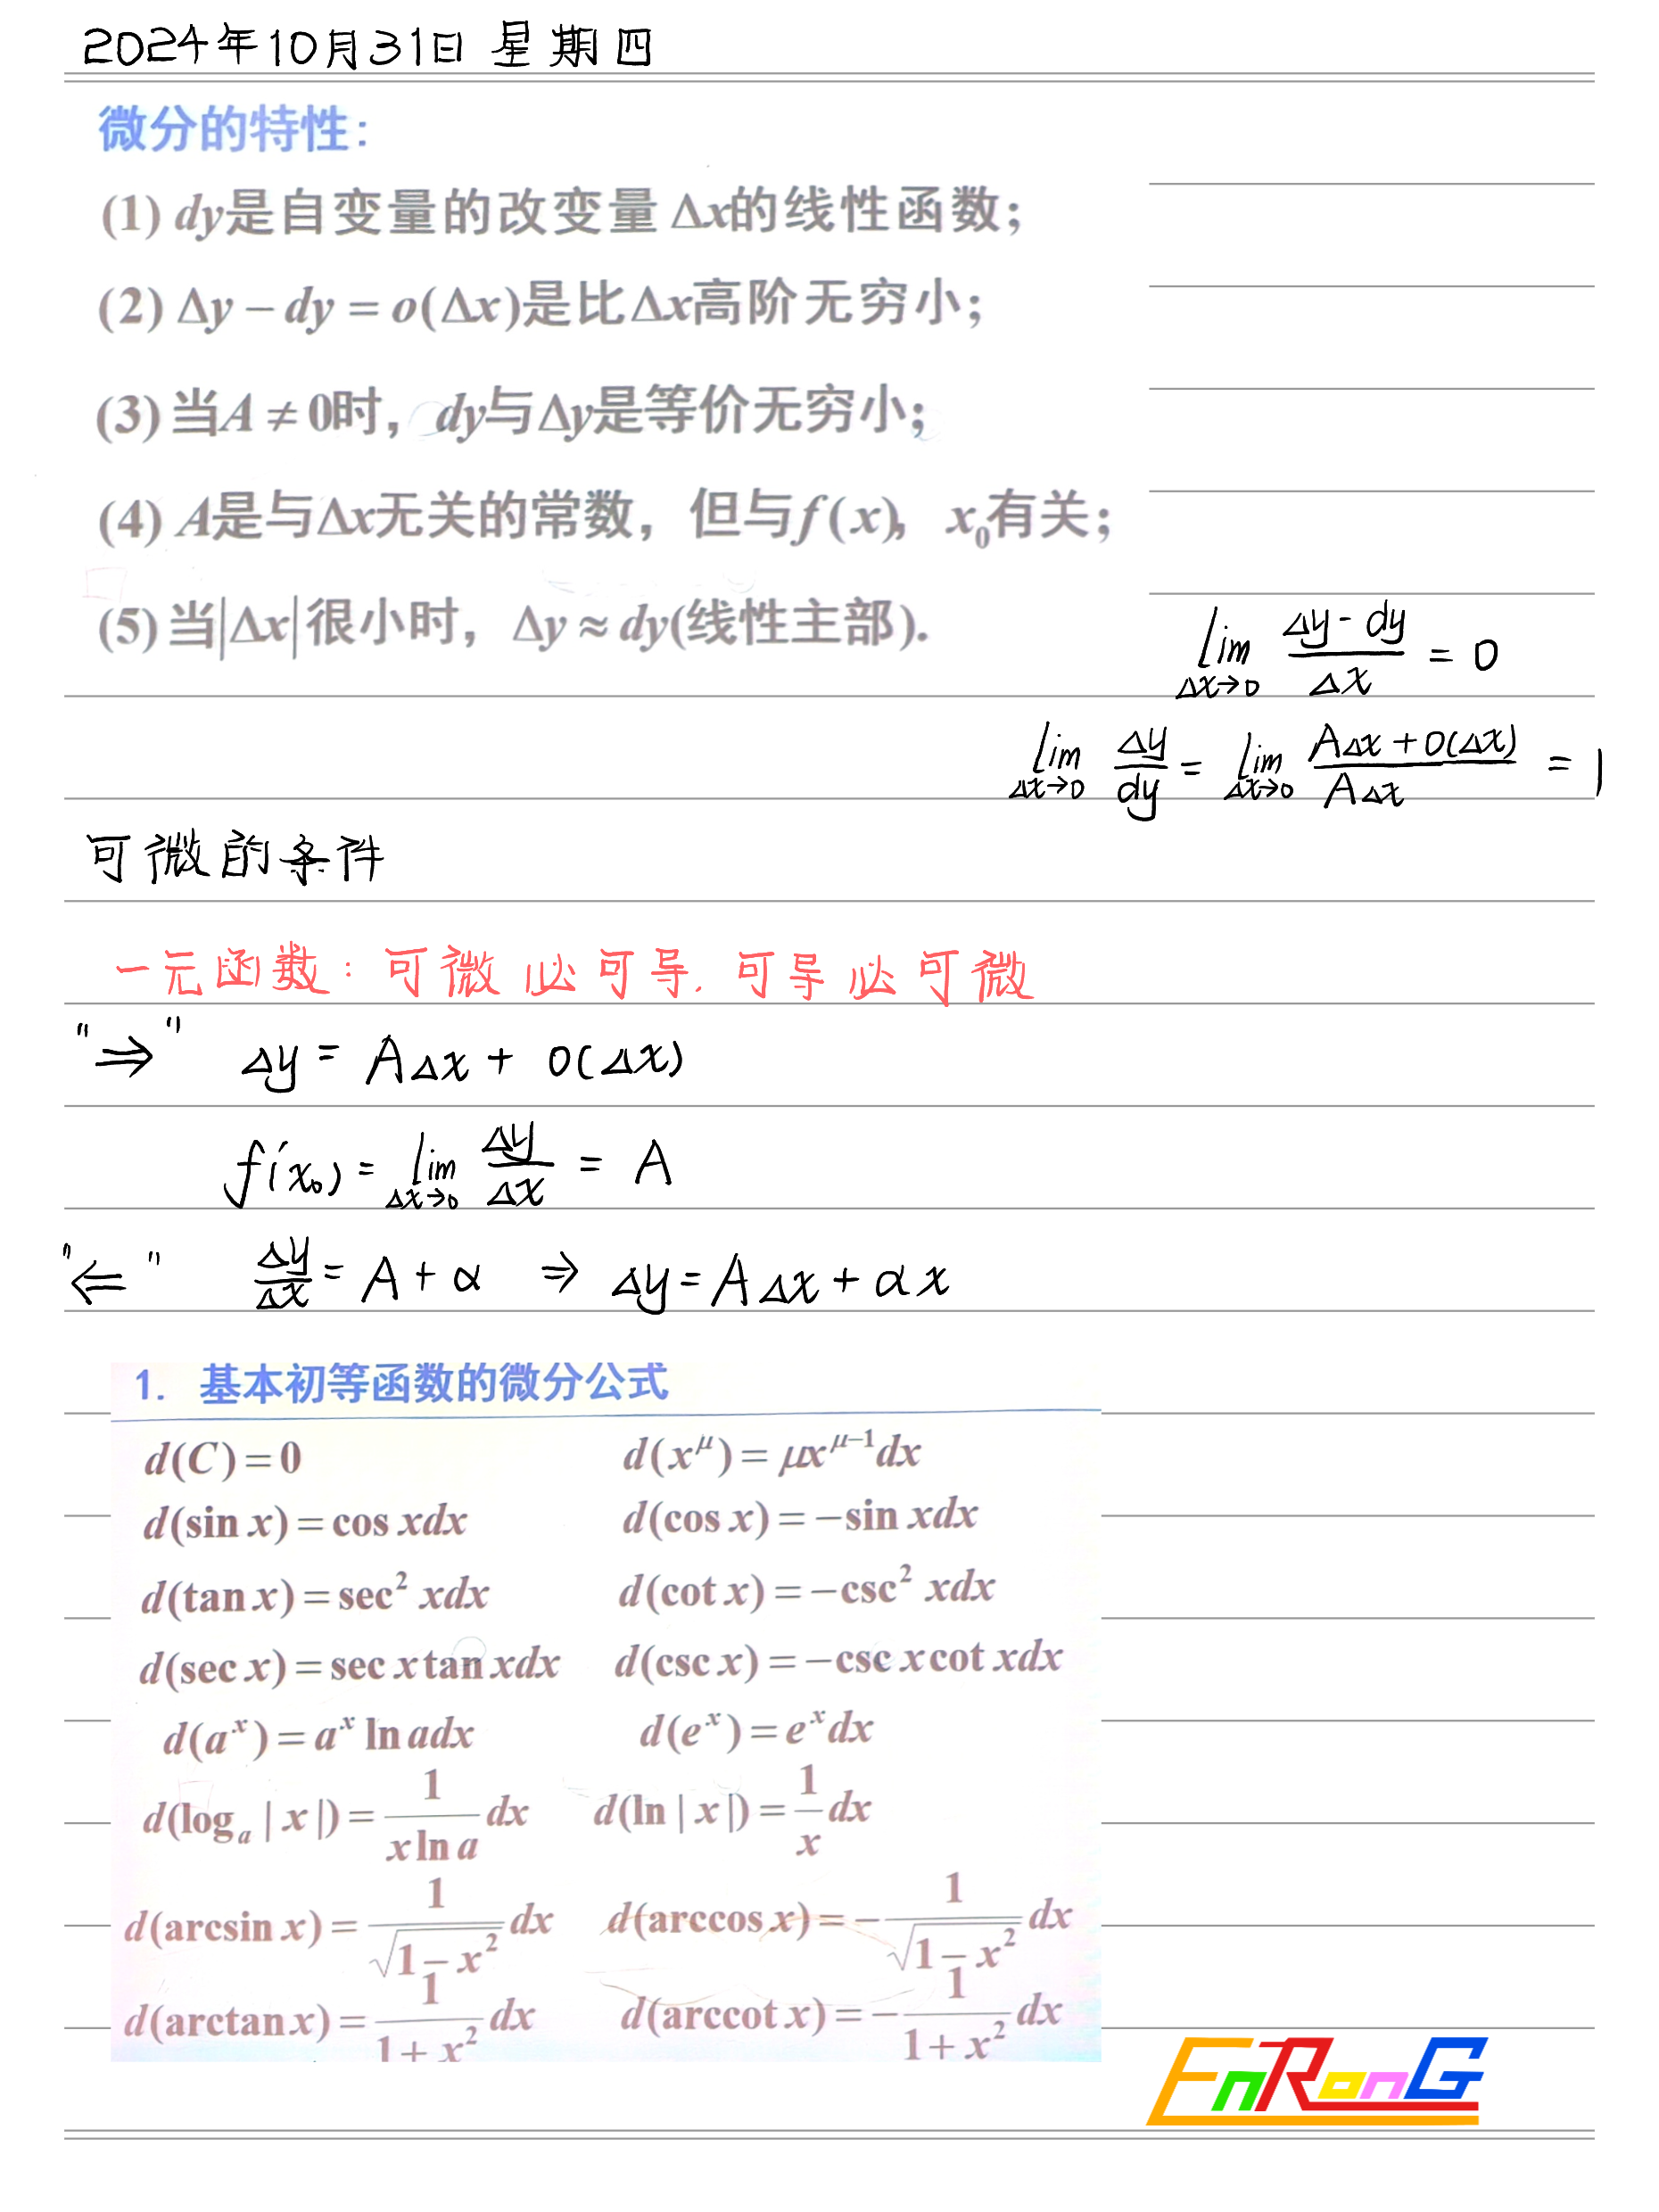 2024年10月31日 星期四
微分的特性:
(1) dy是自变量的改变量 Δx的线性函数;
(2) Δy − dy = o(Δx)是比Δx高阶无穷小;
(3) 当A ≠ 0时, dy与Δy是等价无穷小;
(4) A是与Δx无关的常数, 但与f(x), x₀有关;
(5) 当|Δx|很小时, Δy ≈ dy(线性主部).
lim Δx→0 (Δy - dy)/Δx = 0
lim Δx→0 Δy/dy = lim Δx→0 (AΔx + o(Δx))/(AΔx) = 1
可微的条件
一元函数: 可微必可导. 可导必可微
"⇒" Δy = AΔx + o(Δx)
f'(x₀) = lim Δx→0 Δy/Δx = A
"⇐" Δy/Δx = A + α ⇒ Δy = AΔx + αx
1. 基本初等函数的微分公式
d(C) = 0 d(x^μ) = μx^(μ−1)dx
d(sin x) = cos xdx d(cos x) = −sin xdx
d(tan x) = sec² xdx d(cot x) = −csc² xdx
d(sec x) = sec x tan xdx d(csc x) = −csc x cot xdx
d(a^x) = a^x ln adx d(e^x) = e^x dx
d(log_a |x|) = 1/(x ln a) dx d(ln |x|) = 1/x dx
d(arcsin x) = 1/√(1−x²) dx d(arccos x) = −1/√(1−x²) dx
d(arctan x) = 1/(1+x²) dx d(arccot x) = −1/(1+x²) dx
EnRonG